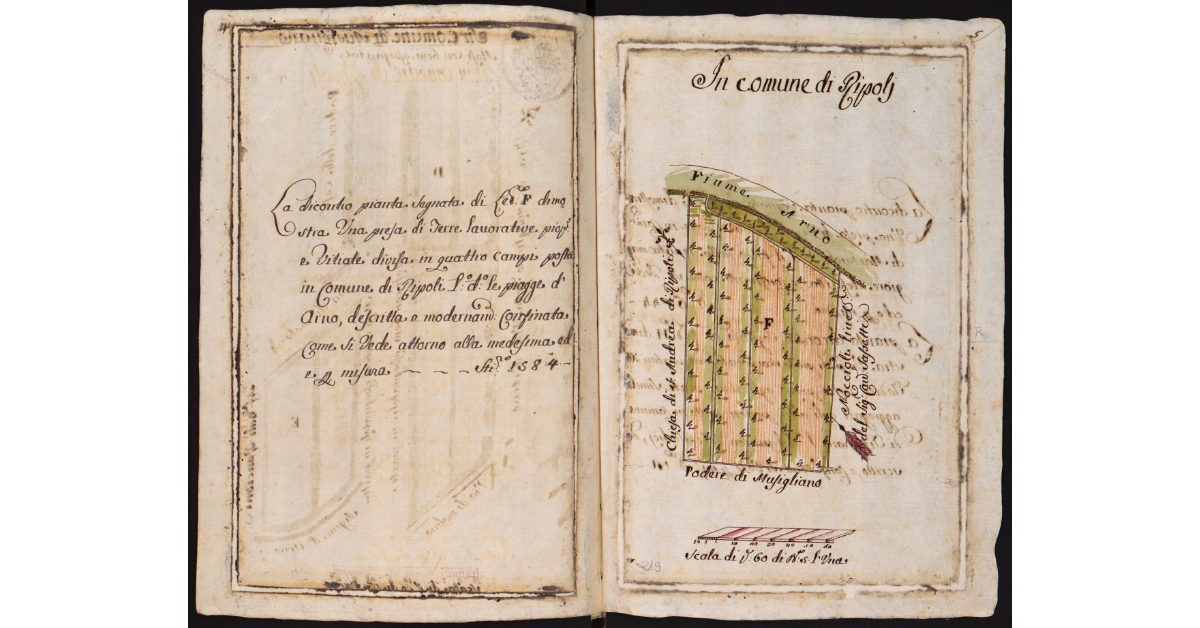 4
La dicontro pianta Segnata di Led: F dimo
stra Una presa di Terre lavorative piop.e
e Vitiate divisa in quattro Campi posta
in Comune di Ripoli L.o d.o le piagge d'
Arno, descritta e modernam: Confinata
Come Si Vede attorno alla medesima ed
e misura — — — — Sti.o 158:4—
5
In comune di Ripolj
Fiume Arno
Chiesa di S. Andrea di Ripoli
F
del Sig.
Podere di Musigliano
10 20 30 40 50
Scala di 60 di
219